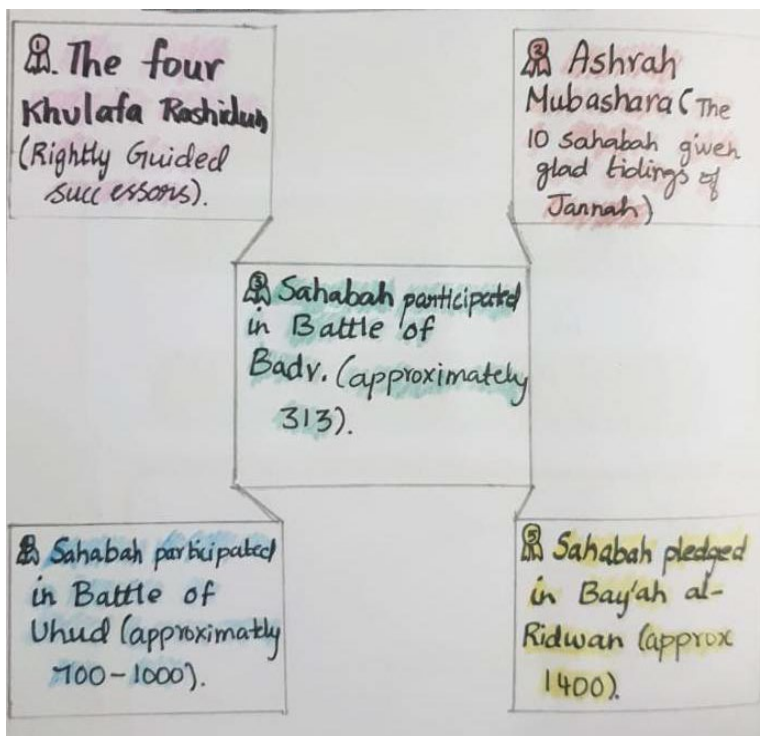 1. The four
Khulafa Rashidun
(Rightly Guided
successors).
2 Ashrah
Mubashara (The
10 sahabah given
glad tidings of
Jannah)
3 Sahabah participated
in Battle of
Badr. (approximately
313).
Sahabah participated
in Battle of
Uhud (approximatly
700-1000).
5 Sahabah pledged
in Bay'ah al-
Ridwan (approx
1400).